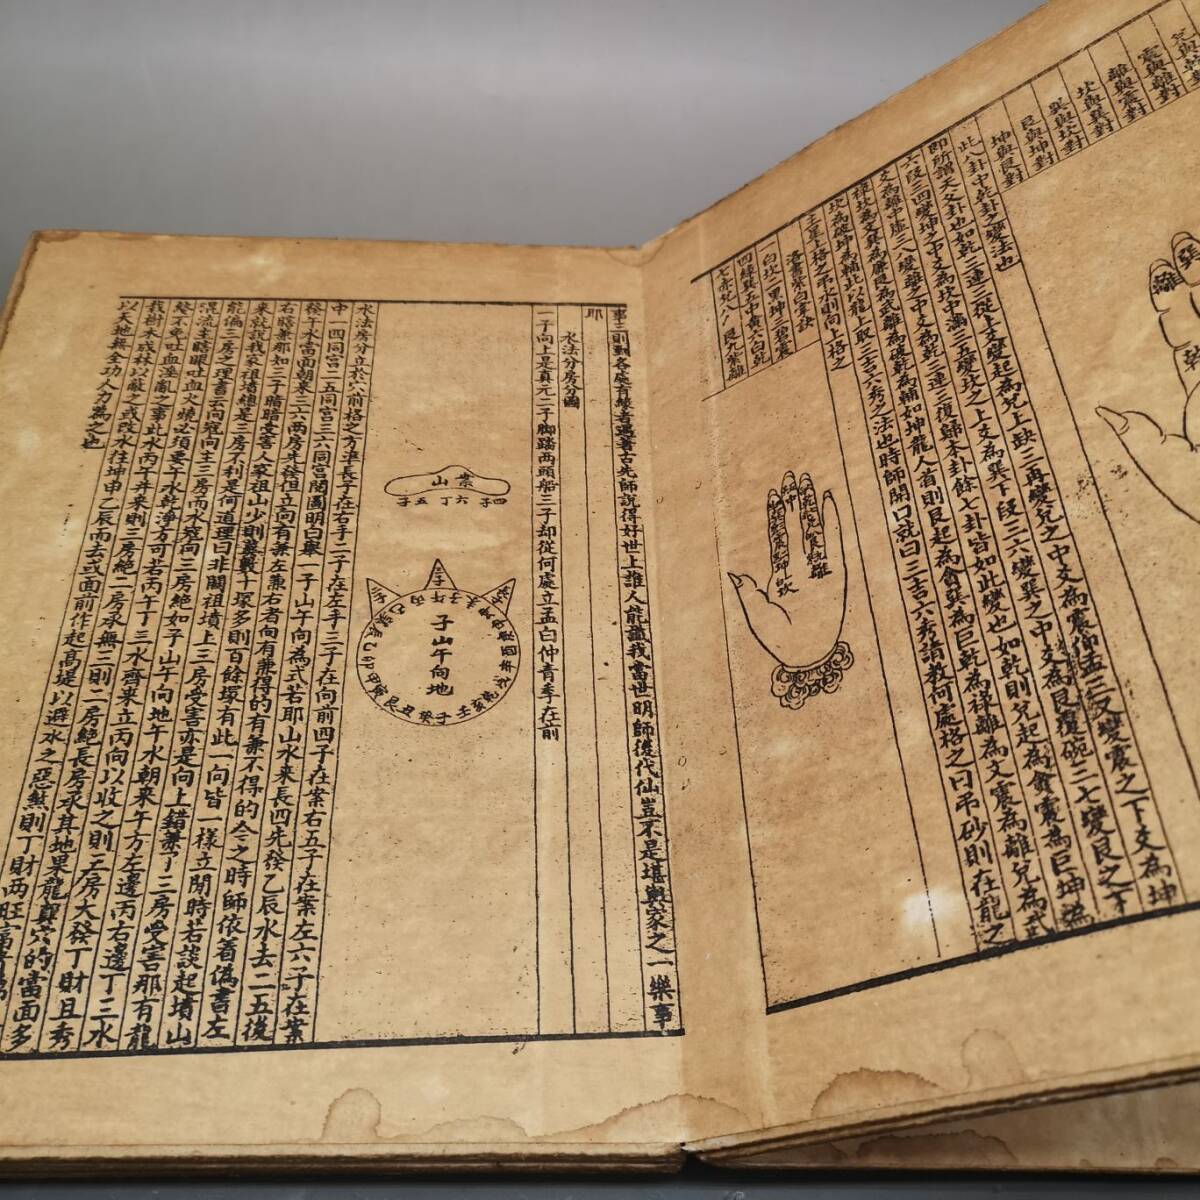 兌與乾
震與離對
離與震對
坎與巽對
巽與坎對
艮與坤對
坤與艮對
此八卦中乾卦之變法也
即所謂天父卦也如乾三連三從上爻變起為兌上缺三再變兌之中爻為震仰盂三又變震之下爻為坤
六段三四變坤之中爻為坎中滿三五變坎之上爻為巽下段三六變巽之中爻為艮覆碗三七變艮之下
爻為離中虛三八變離之中爻為乾三連三復歸本卦餘七卦皆如此變也如乾則兌起為貪震為巨坤為
祿坎為文巽為廉艮為武離為破乾為輔如坤龍入首則艮起為貪巽為巨乾為祿離為文震為廉兌為武
坎為破坤為輔此以龍上取三吉六秀之法也時師開口就曰三吉六秀請教何處格之曰吊砂則在龍之
上星上格之吊水則向上格之
洛書紫白掌訣
一白坎二黑坤三碧震
四綠巽五中黃六白乾
七赤兌八白艮九紫離
巽
離
乾
中
坎
事三則對各處育嬰者遇著古先師說得好世上誰人能識我當世明師後代仙豈不是堪輿家之一樂事
耶
水法分房分圖
一子向上是真元二子脚踏兩頭船三子却從何處立孟白仲青季在前
案山
四子六丁五子
三子
子山午向地
水法房分立於穴前格之方準長子在右手二子在左手三子在向前四子在案右五子在案左六子在案
中一四同宮二五同宮三六同宮開圖明白舉一子山午向為式若耶山水來長四先發乙辰水去二五後
發十字當面朝來三六兩房先發但立向有兼左兼右者向有兼得的有兼不得的今之時師依着偽書左
右暗兼那知三子暗暗受害人家祖山少則冀數十塚多則百餘塚有此一向皆一樣立開時若談起墳山
來就我我家祖墳總是三房不利是何道理曰非關祖墳上三房受害亦是向上錯兼了三房受害那有龍
能偏三房之理書云向冠向主三房而水冠向三房絕如子山午向地午水朝來午方左邊丙右邊丁三水
混流主時眼吐血火燒必須要午水乾淨方可若丙午丁三水齊來立丙向以收之則三房大發丁財且秀
發不免吐血淫亂之事此水丙午丼來則三房絕二房承無三則二房絕長房承其地果龍真穴的當面多
栽樹木成林以蔽之或改水往坤申乙辰而去或面前作起高堤以避水之惡煞則丁財兩旺富貴
以天地無全功人力為之也